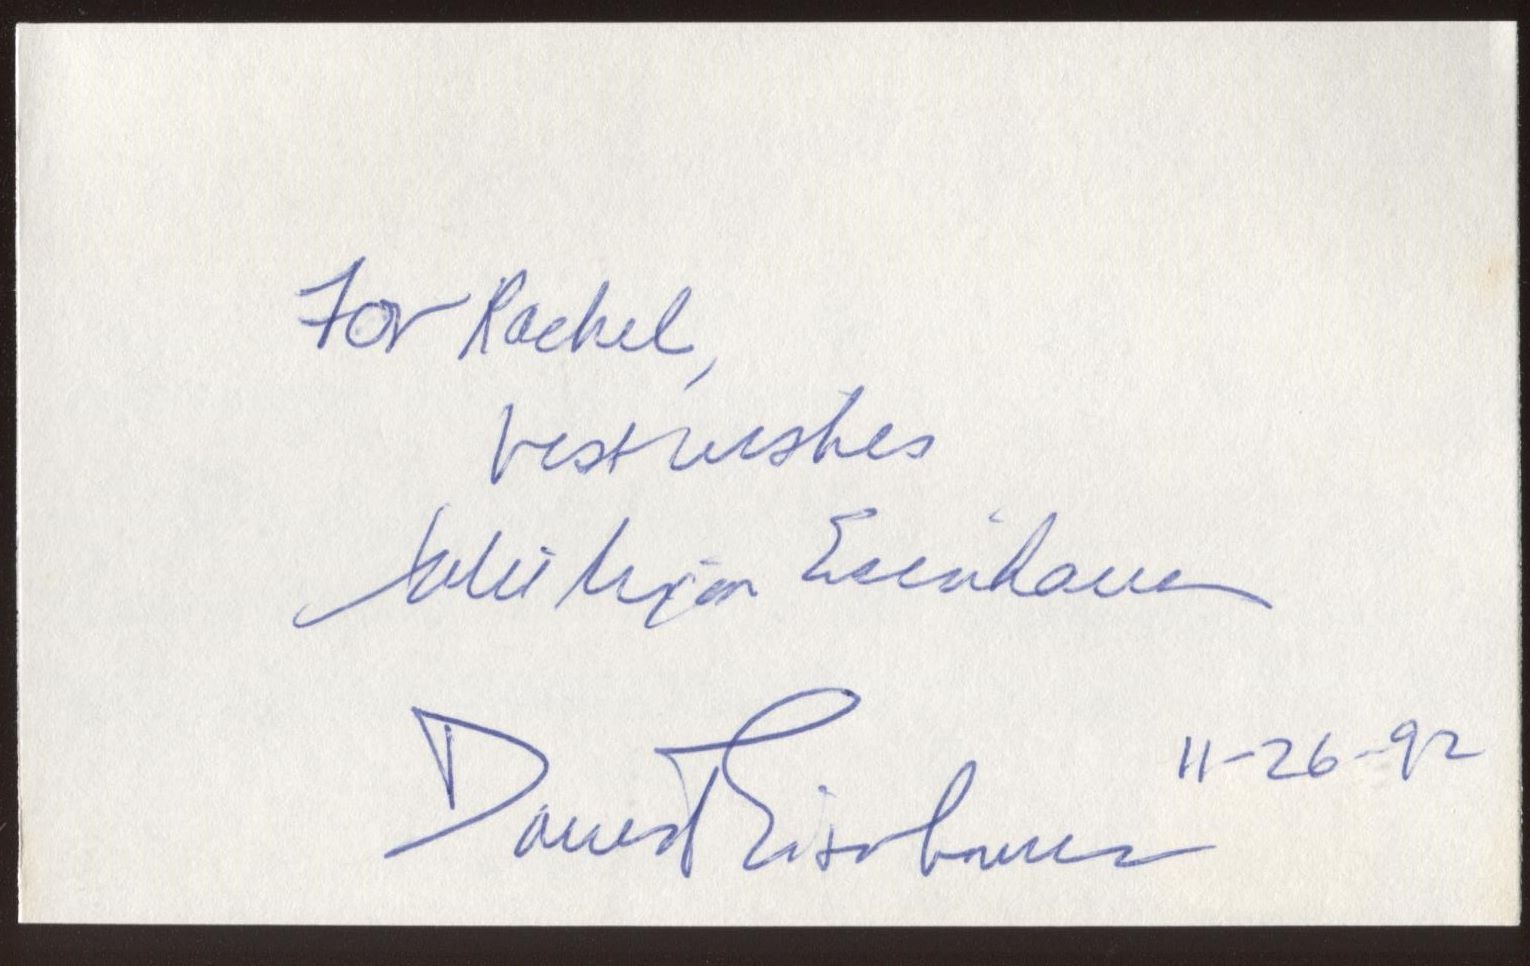 For Rachel,
best wishes
Julie Nixon Eisenhower
David Eisenhower
11-26-92